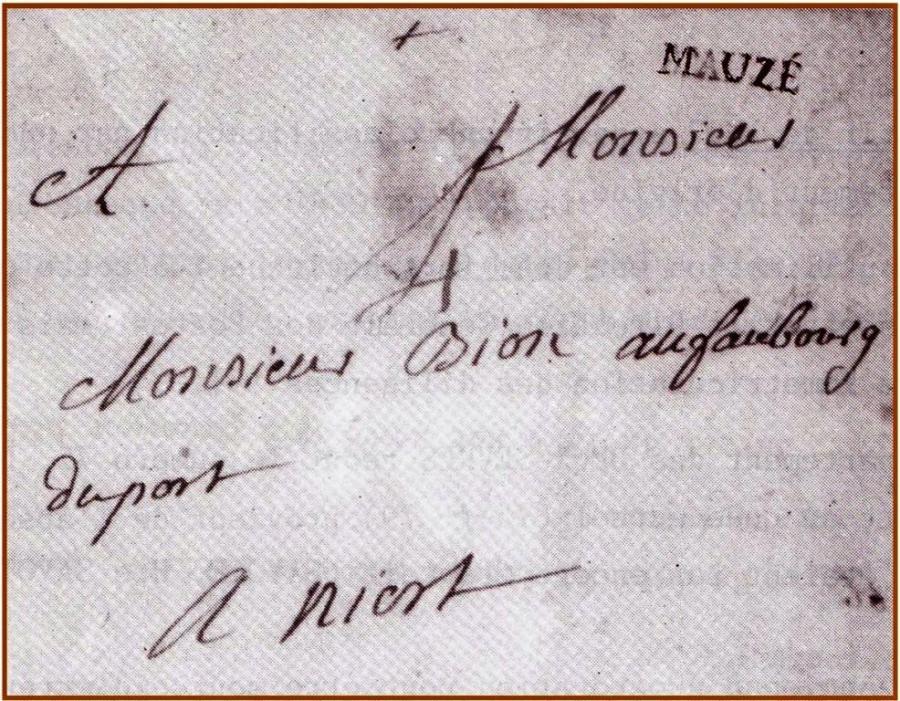 MAUZÉ
A Monsieur
4
Monsieur Bion aufaubourg
du port
A niort